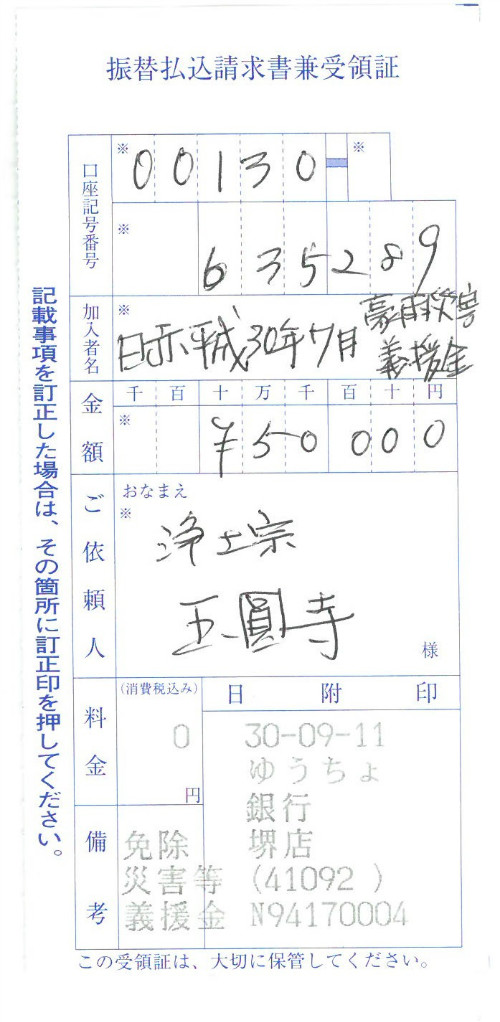 振替払込請求書兼受領証
口座記号番号
※
00130-
※
※
635289
加入者名
※
日赤平成30年7月豪雨災害
義援金
金額
千百十万千百十円
※
¥50000
ご依頼人
おなまえ
※
浄土宗
玉圓寺
様
料金
(消費税込み)
0
円
日附印
30-09-11
ゆうちょ
銀行
堺店
(41092 )
N94170004
備考
免除
災害等
義援金
記載事項を訂正した場合は、その箇所に訂正印を押してください。
この受領証は、大切に保管してください。